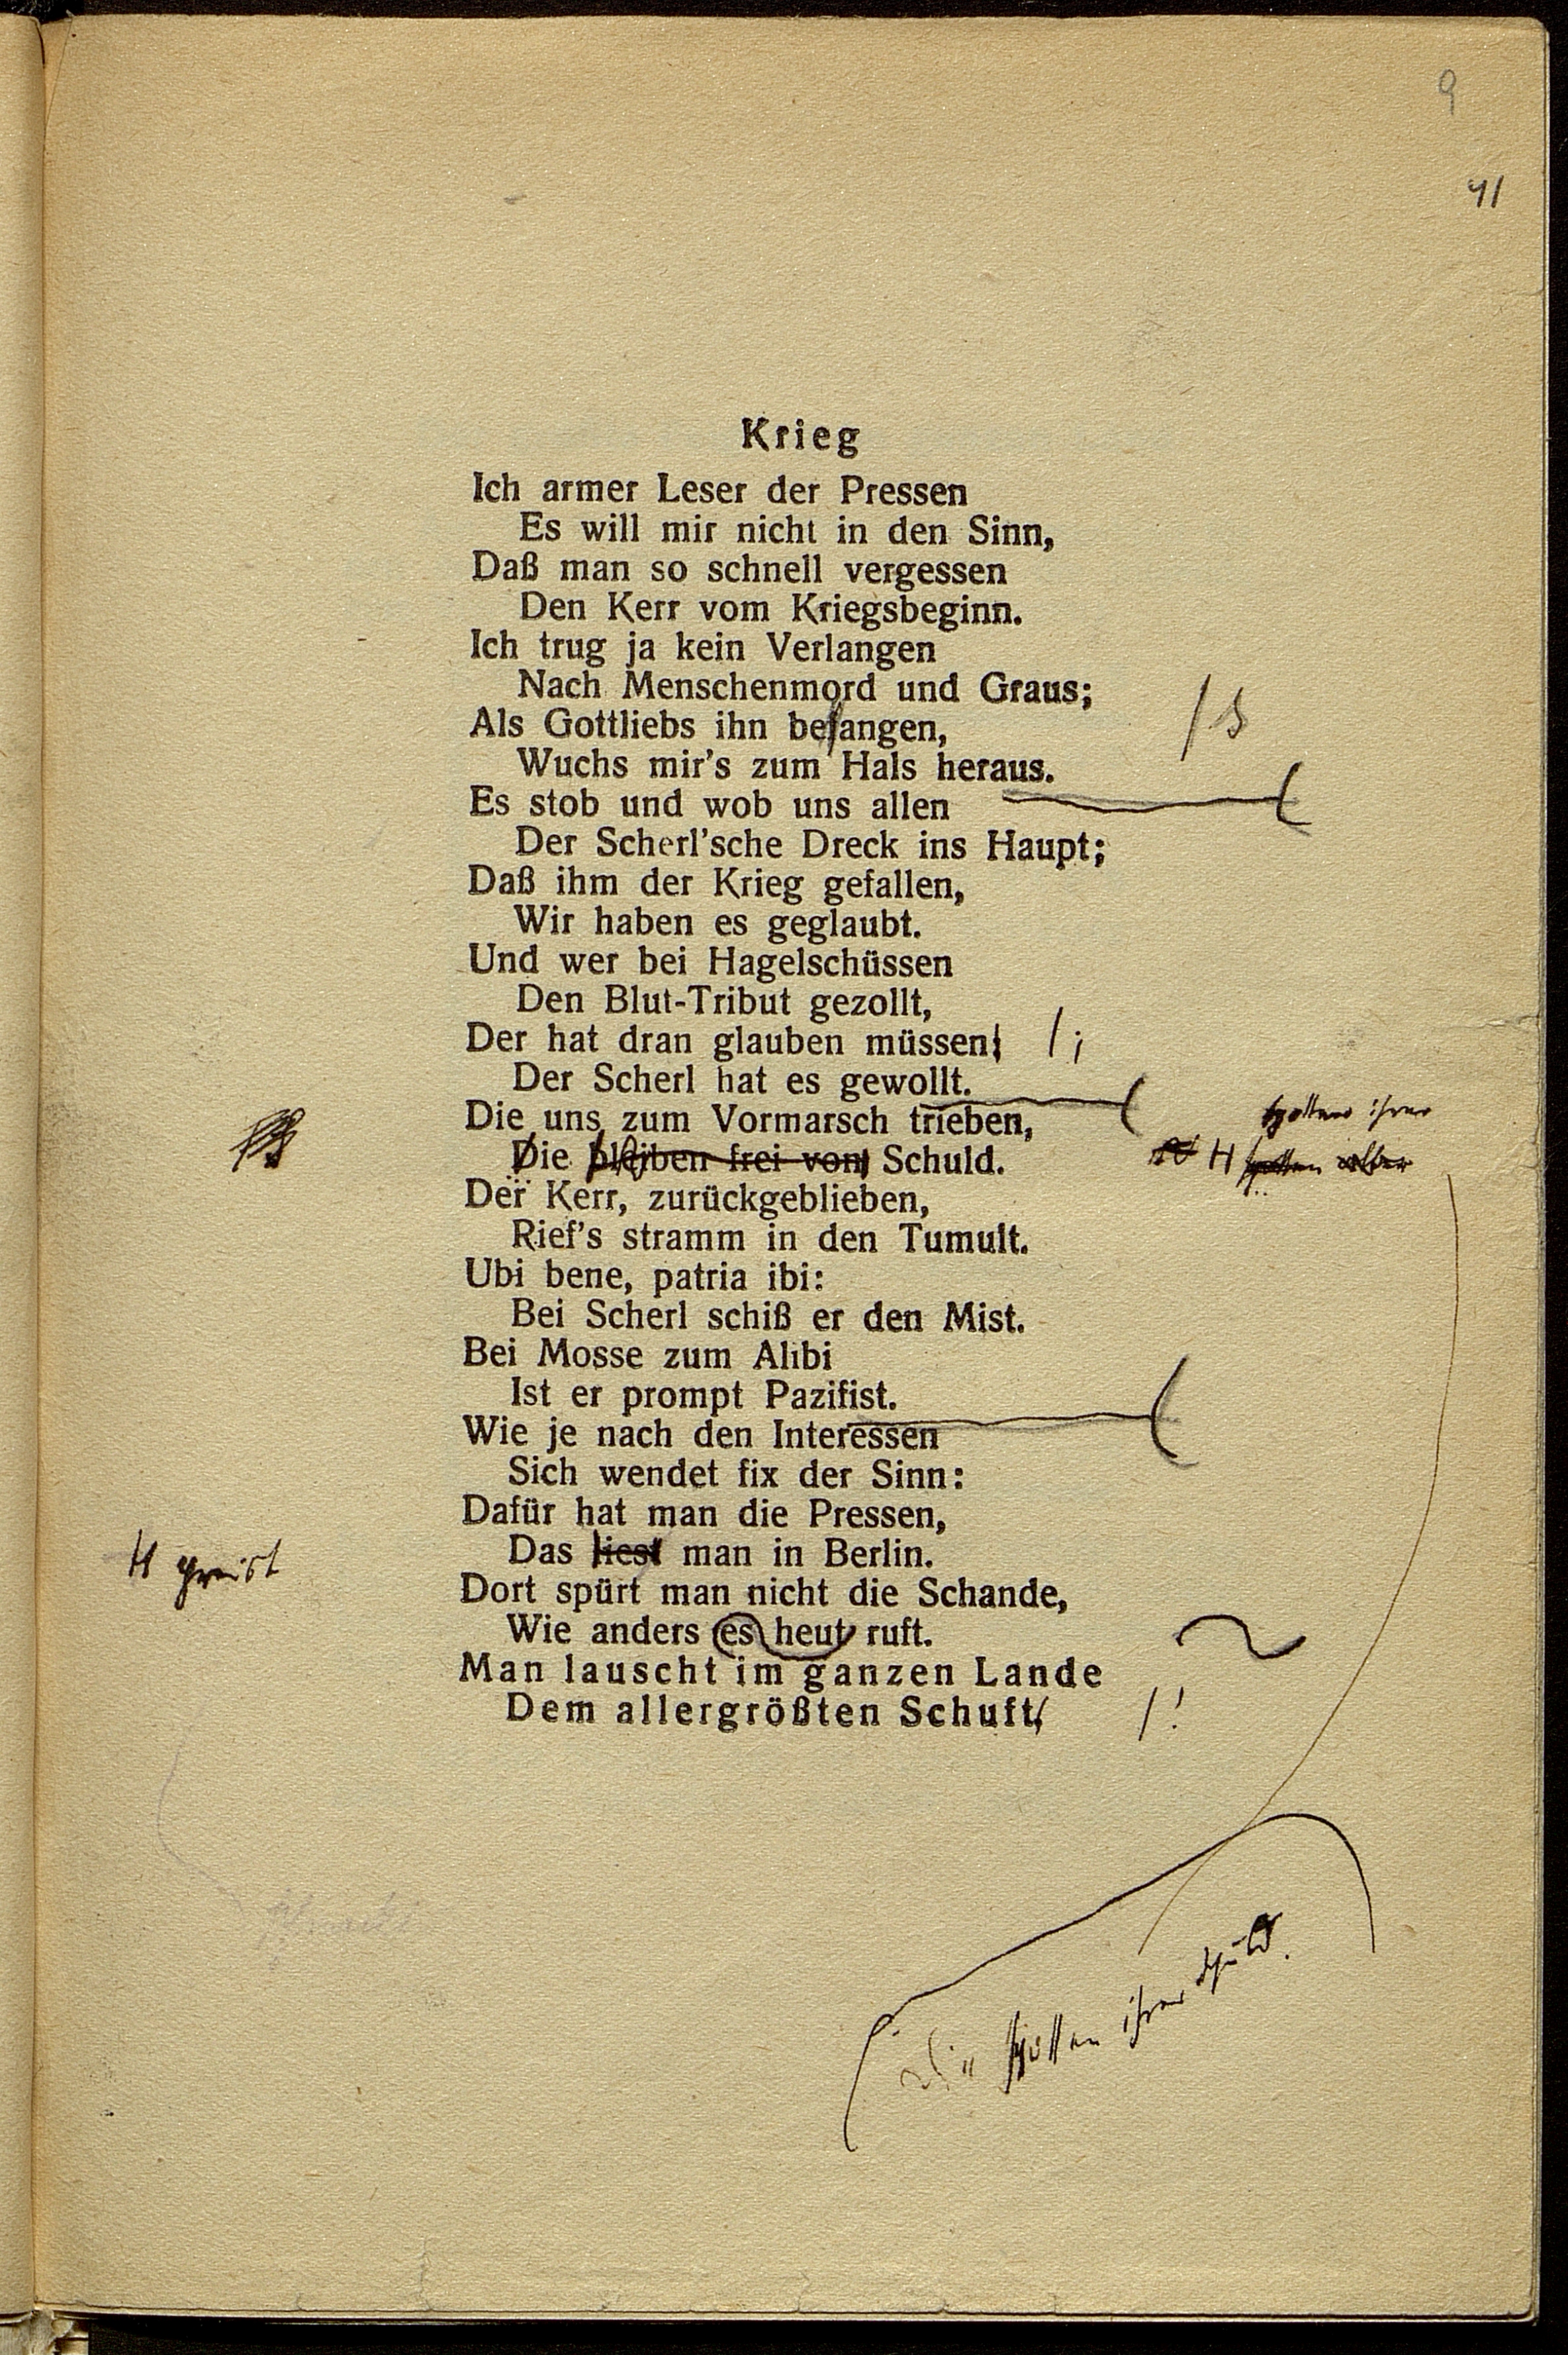 9
41
Krieg
Ich armer Leser der Pressen
Es will mir nicht in den Sinn,
Daß man so schnell vergessen
Den Kerr vom Kriegsbeginn.
Ich trug ja kein Verlangen
Nach Menschenmord und Graus;
Als Gottliebs ihn besangen,
Wuchs mir's zum Hals heraus.
Es stob und wob uns allen
Der Scherl'sche Dreck ins Haupt;
Daß ihm der Krieg gefallen,
Wir haben es geglaubt.
Und wer bei Hagelschüssen
Den Blut-Tribut gezollt,
Der hat dran glauben müssen; /;
Der Scherl hat es gewollt.
Die uns zum Vormarsch trieben,
spotten ihrer
Die bleiben frei von Schuld. H spotten aller
Der Kerr, zurückgeblieben,
Rief's stramm in den Tumult.
Ubi bene, patria ibi:
Bei Scherl schiß er den Mist.
Bei Mosse zum Alibi
Ist er prompt Pazifist.
Wie je nach den Interessen
Sich wendet fix der Sinn:
Dafür hat man die Pressen,
H preist
Das liest man in Berlin.
Dort spürt man nicht die Schande,
Wie anders es heut ruft.
Man lauscht im ganzen Lande
Dem allergrößten Schuft, /!
Die spotten ihrer Schuld.